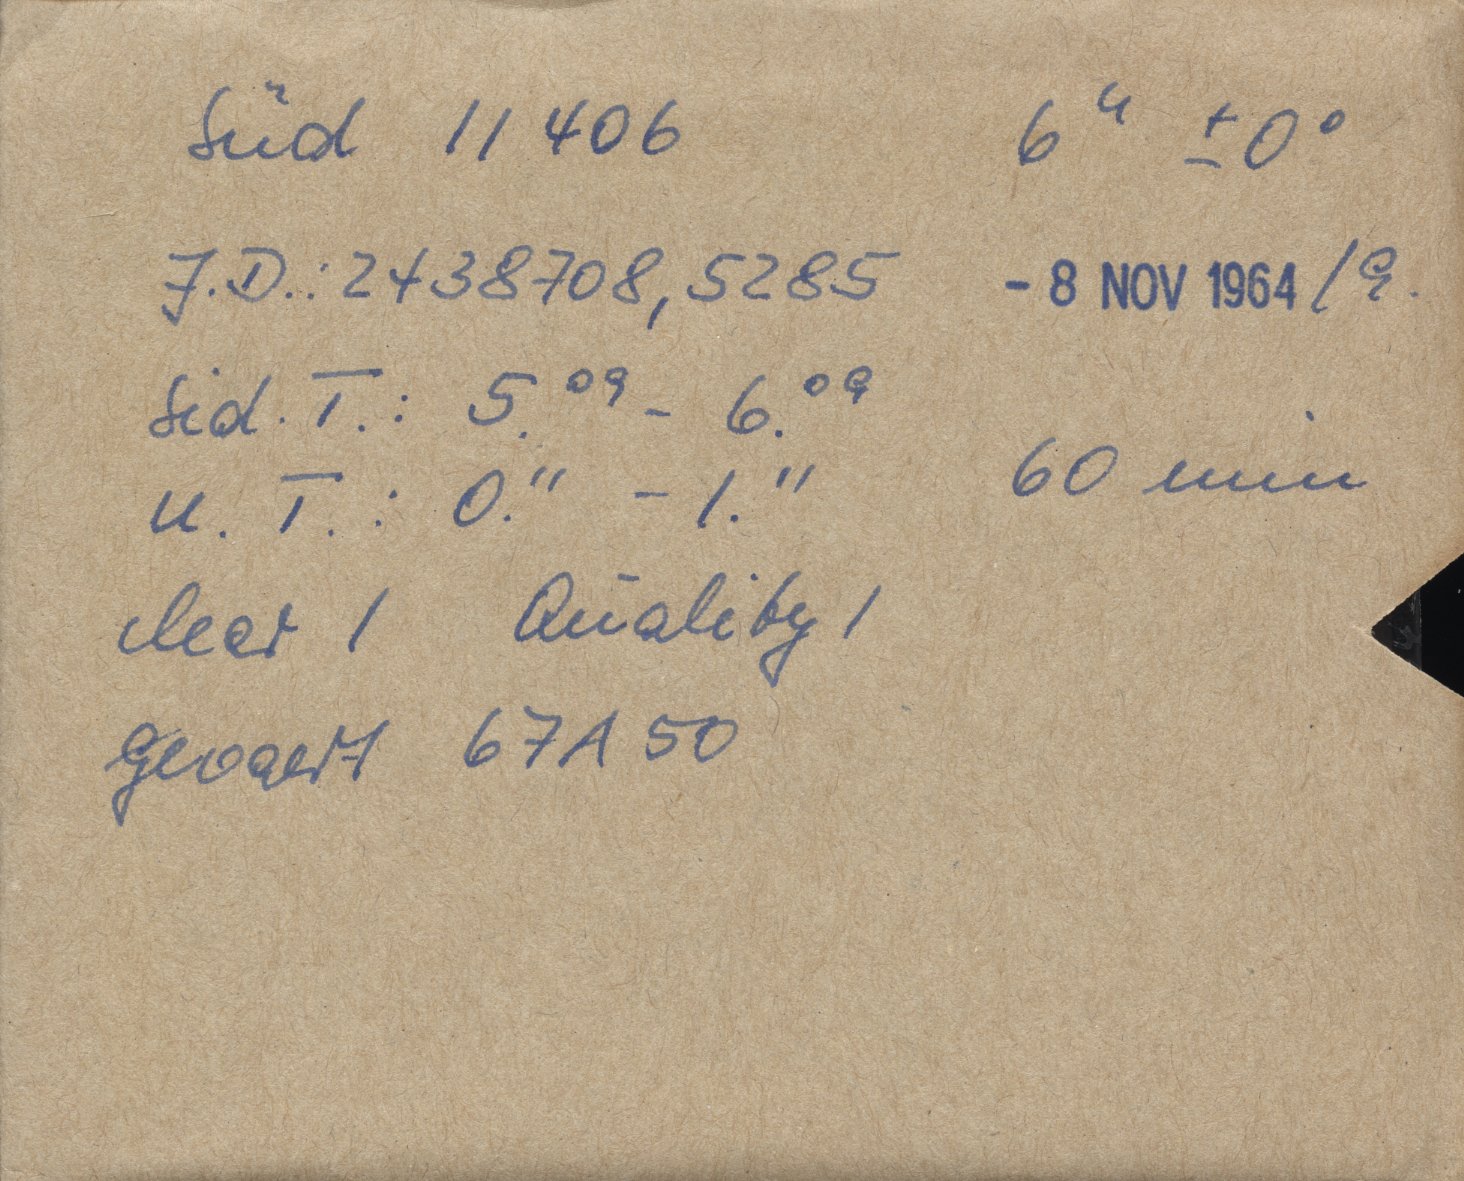 Süd 11406 6ʰ ±0°
J.D.: 2438708,5285 - 8 NOV 1964 /9.
Sid. T.: 5.⁰⁹ - 6.⁰⁹
U. T.: 0.¹¹ - 1.¹¹ 60 min
clear 1 Quality 1
Gevaert 67A50